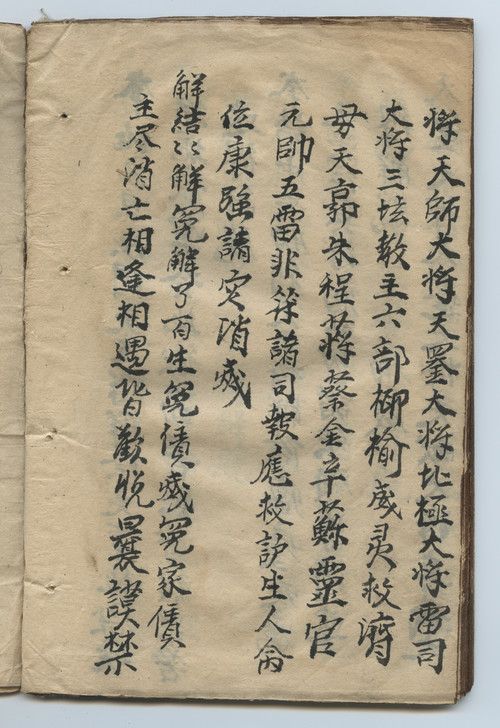 将天師大将天罡大将北極大将雷司
大将三坛教主六部柳榆威灵救济
毋天郭朱程蒋蔡金辛蘇靈官
元帥五雷非部諸司報應救护生人侖
位康強諸灾消灭
解結〻解冤解了百生冤債灭冤家債
主尽消亡相逢相遇皆歡悅曩謨禁